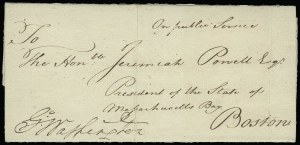 On public Service
To
The Hon.ble Jeremiah Powell Esqr.
President of the State of
Massachusetts Bay
Go Washington
Boston